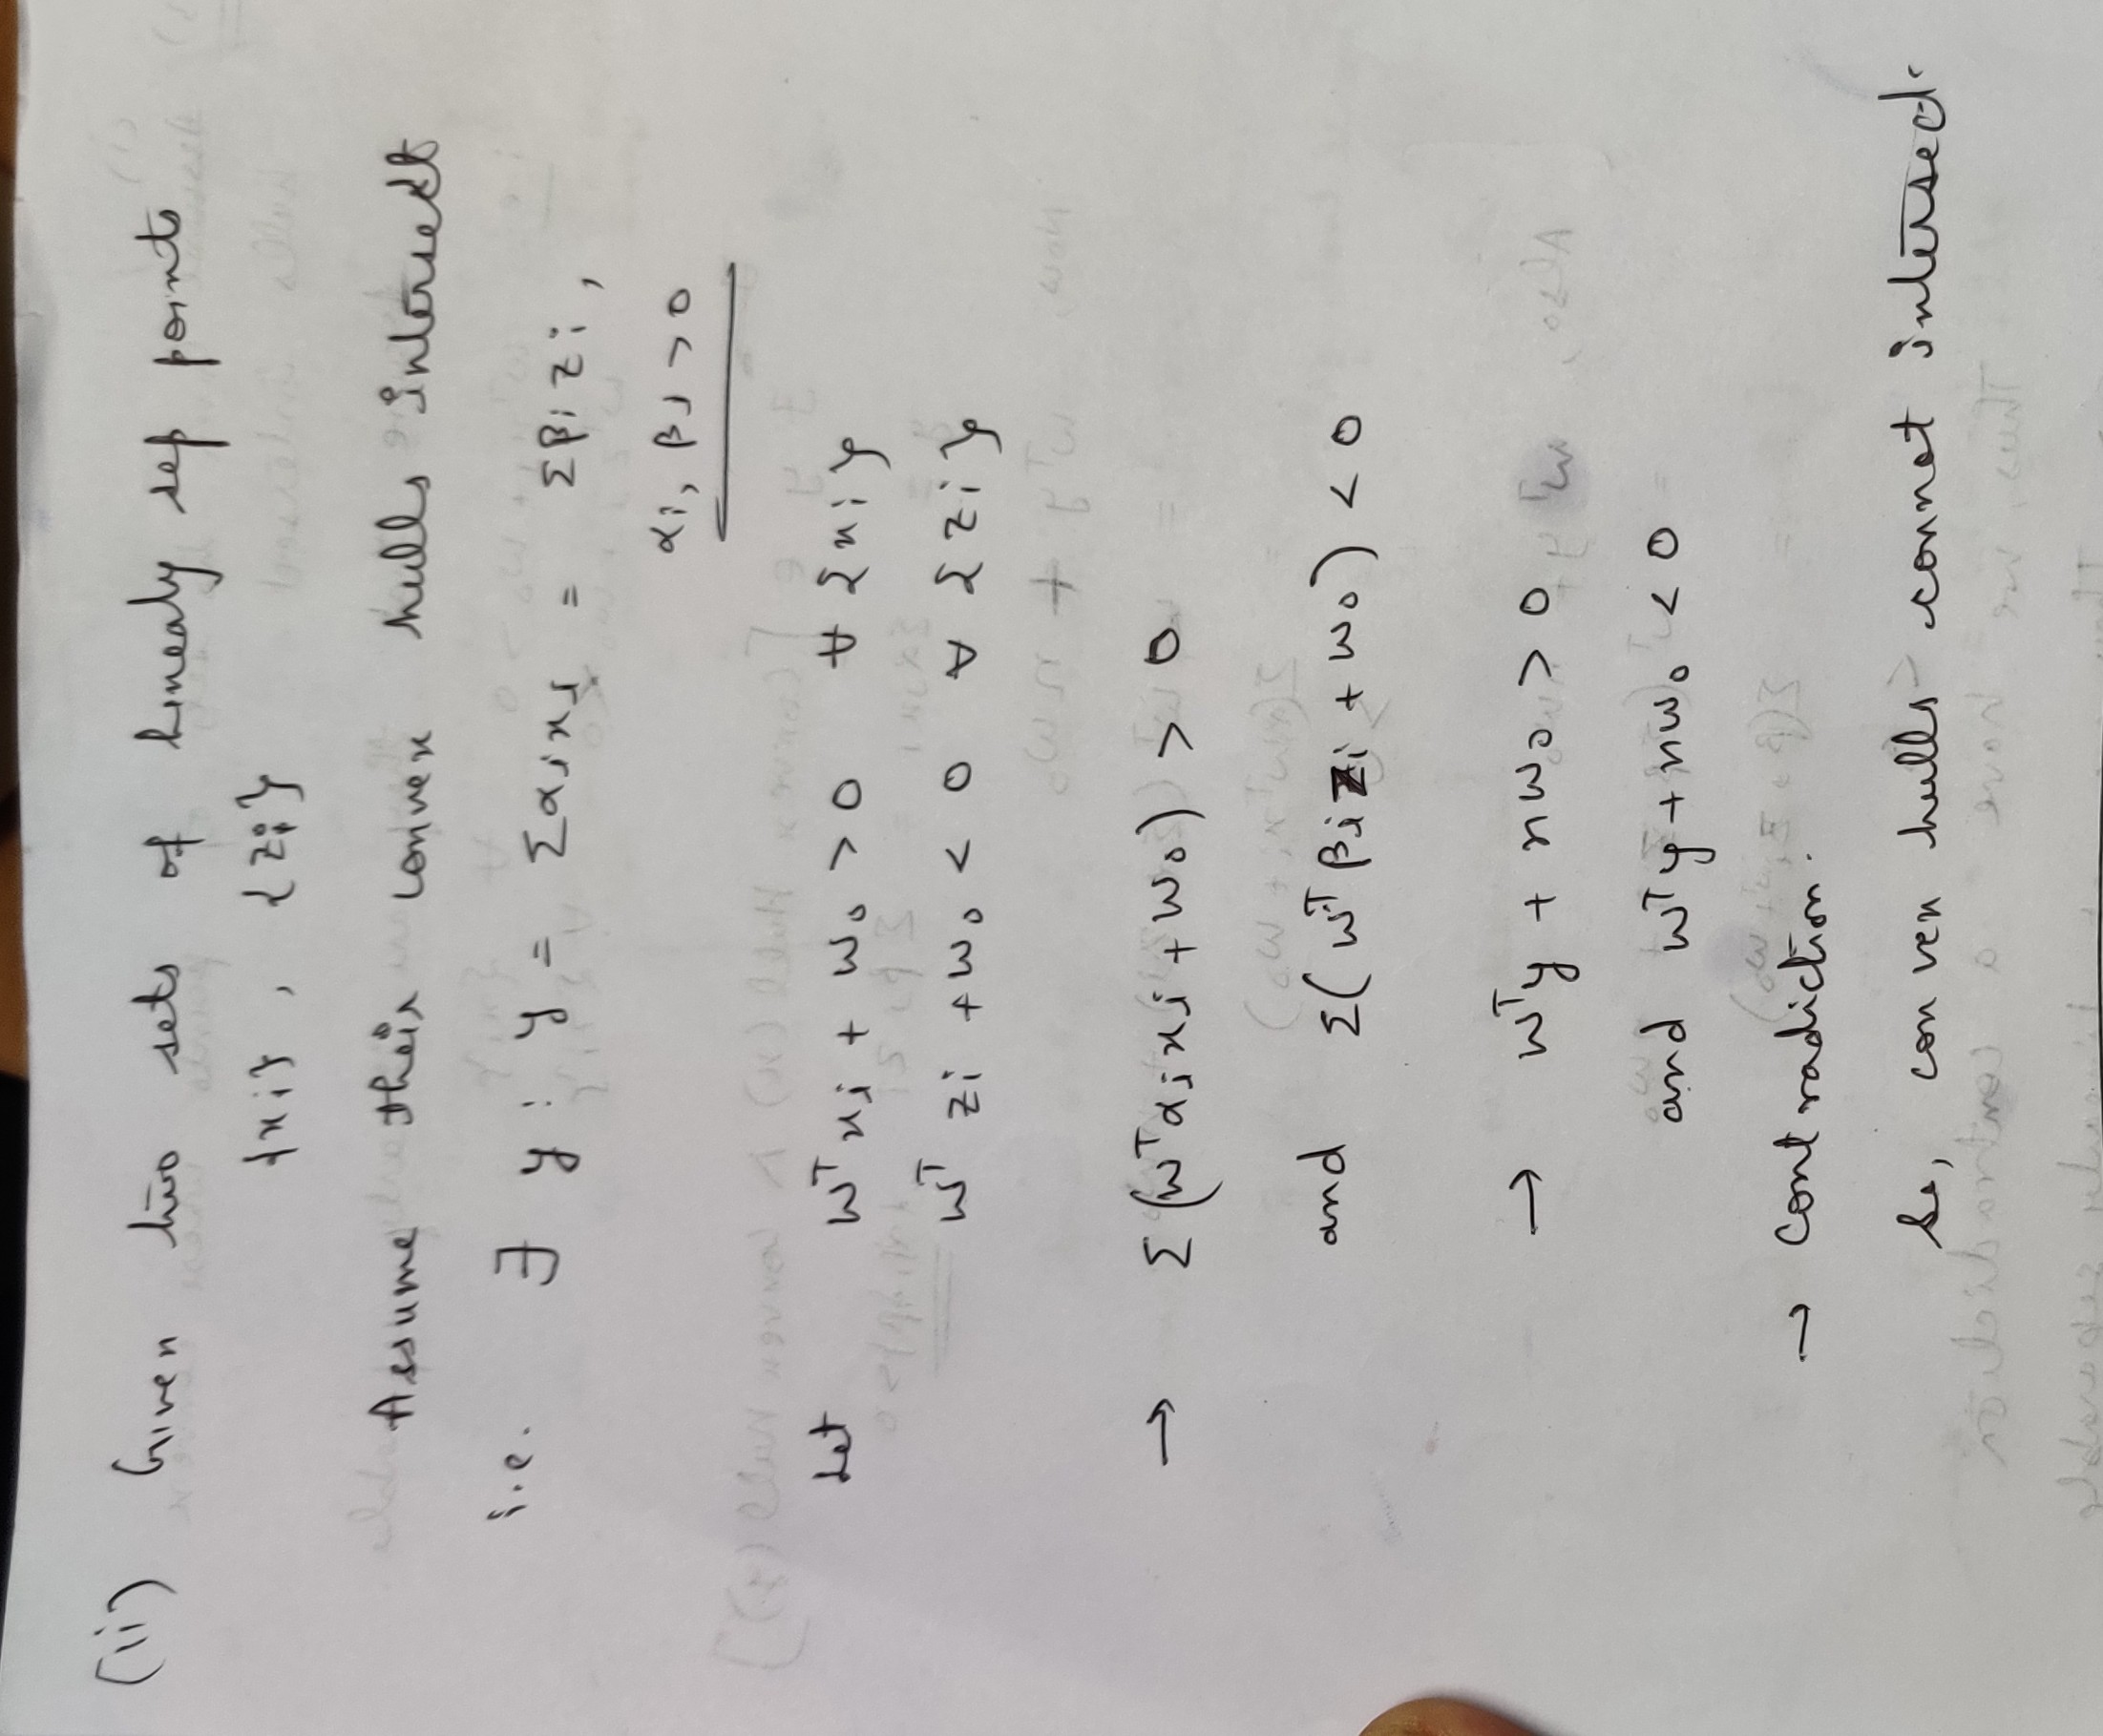 (ii) Given two sets of linealy sep points
{xi} , {zi}
Assume their convex hulls intersect
i.e. ∃ y : y = Σαixi = Σβizi ,
αi, βi > 0
Let wᵀxi + w₀ > 0 ∀ {xi}
wᵀ zi + w₀ < 0 ∀ {zi}
→ Σ(wᵀαixi + w₀) > 0
and Σ(wᵀβizi + w₀) < 0
→ wᵀy + nw₀ > 0
and wᵀy + nw₀ < 0
→ contradiction.
So, convex hulls cannot intersect.